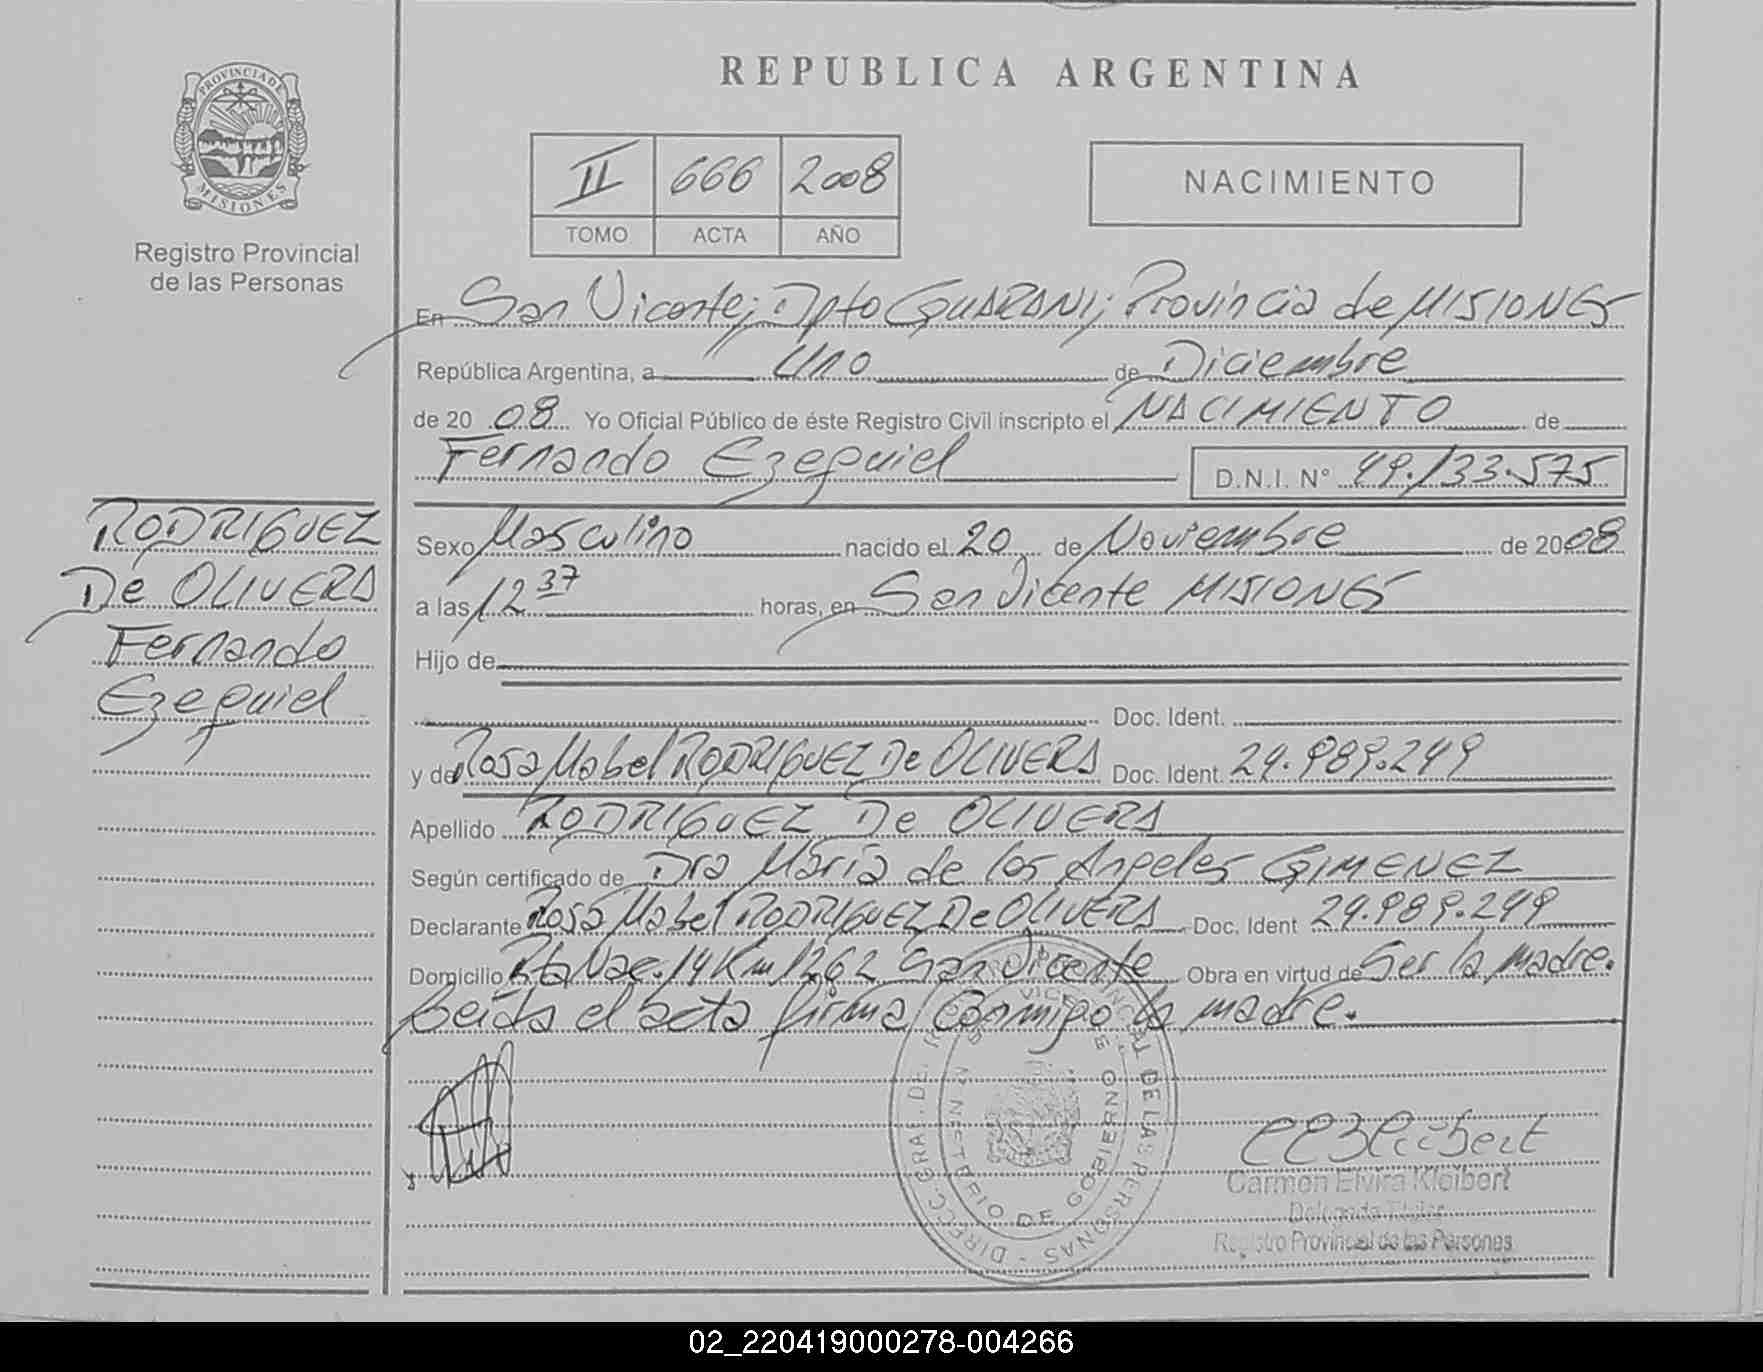 PROVINCIA DE
MISIONES
Registro Provincial
de las Personas
REPUBLICA ARGENTINA
II 666 2008
TOMO ACTA AÑO
NACIMIENTO
En San Vicente; Dpto GUARANI; Provincia de MISIONES
República Argentina, a Uno de Diciembre
de 20 08 Yo Oficial Público de éste Registro Civil inscripto el NACIMIENTO de
Fernando Ezequiel D.N.I. N° 49.133.575
RODRIGUEZ
De OLIVERA
Fernando
Ezequiel
Sexo Masculino nacido el 20 de Noviembre de 2008
a las 12 37 horas, en San Vicente MISIONES
Hijo de
Doc. Ident.
y de Rosa Mabel RODRIGUEZ De OLIVERA Doc. Ident. 29.989.249
Apellido RODRIGUEZ De OLIVERA
Según certificado de Dra María de los Angeles GIMENEZ
Declarante Rosa Mabel RODRIGUEZ De OLIVERA Doc. Ident 29.989.249
Domicilio Rta Nac. 14 Km 1262 San Vicente Obra en virtud de Ser la madre.
Leída el acta firma conmigo la madre.
Carmen Elvira Kleibert
Delegada Titular
Registro Provincial de las Personas
02_220419000278-004266